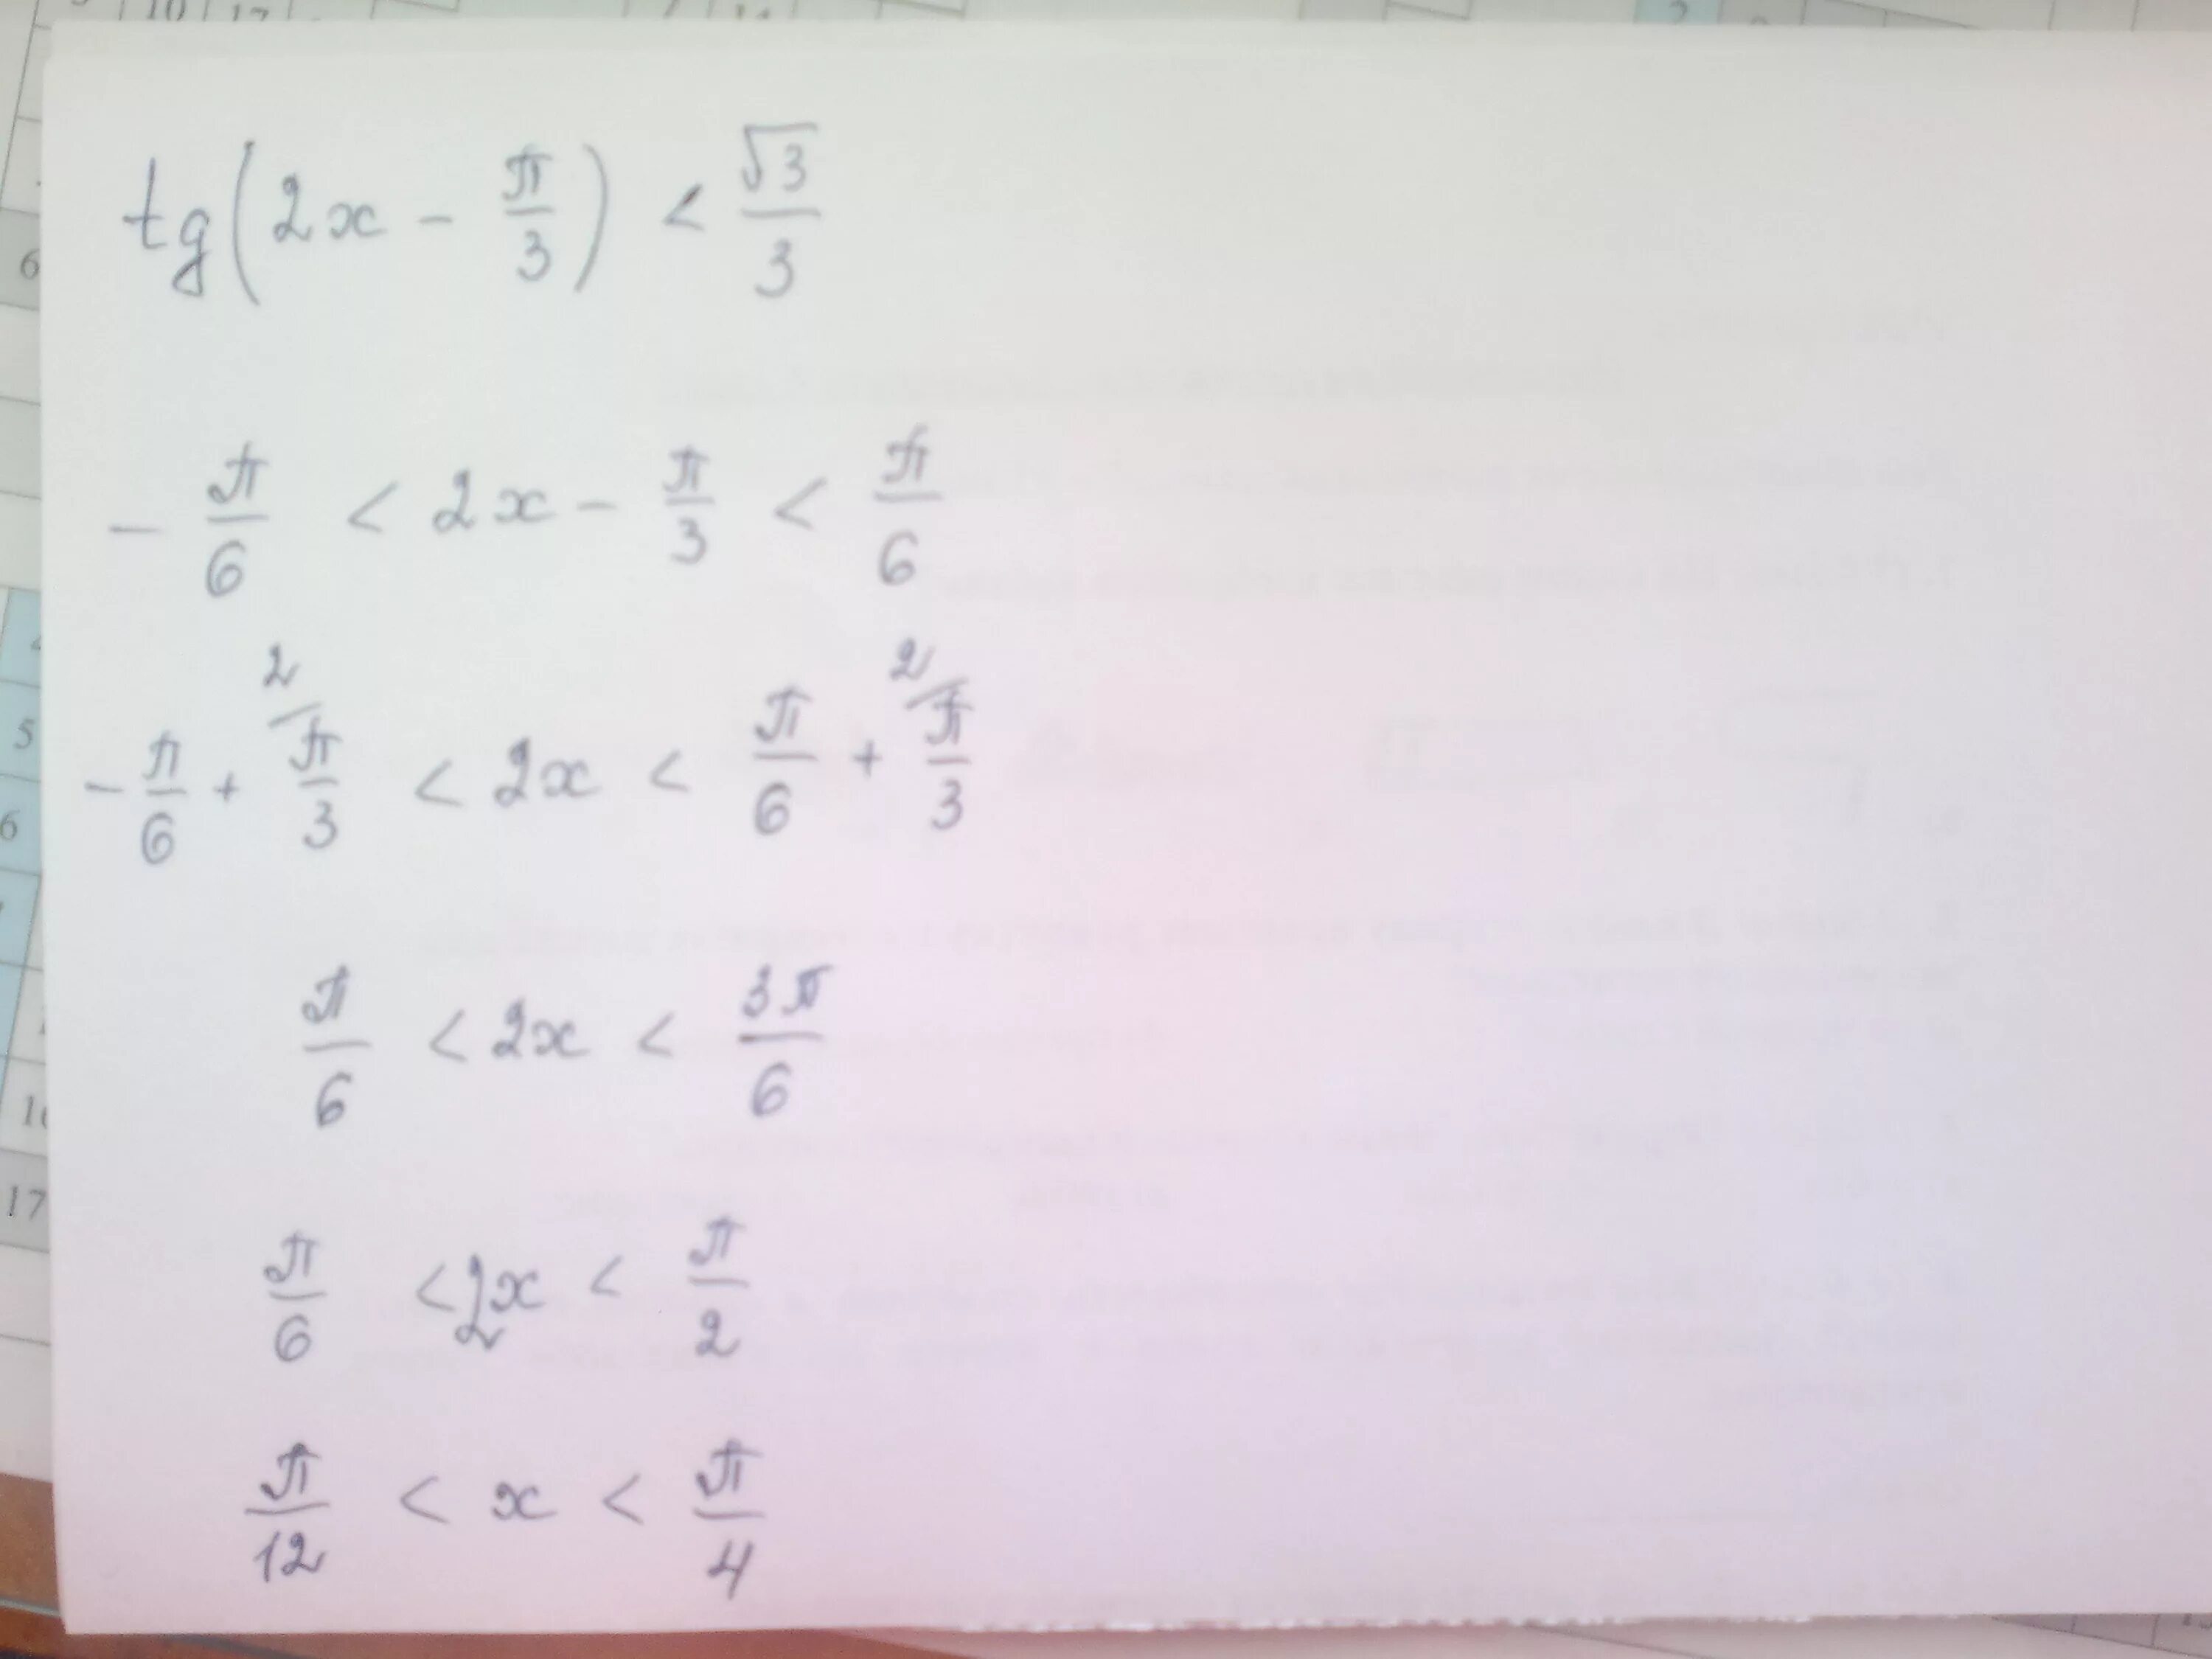 tg(2x - π/3) < √3/3
- π/6 < 2x - π/3 < π/6
- π/6 + 2/ π/3 < 2x < π/6 + 2/ π/3
π/6 < 2x < 3π/6
π/6 < 2x < π/2
π/12 < x < π/4
6
5
6
17